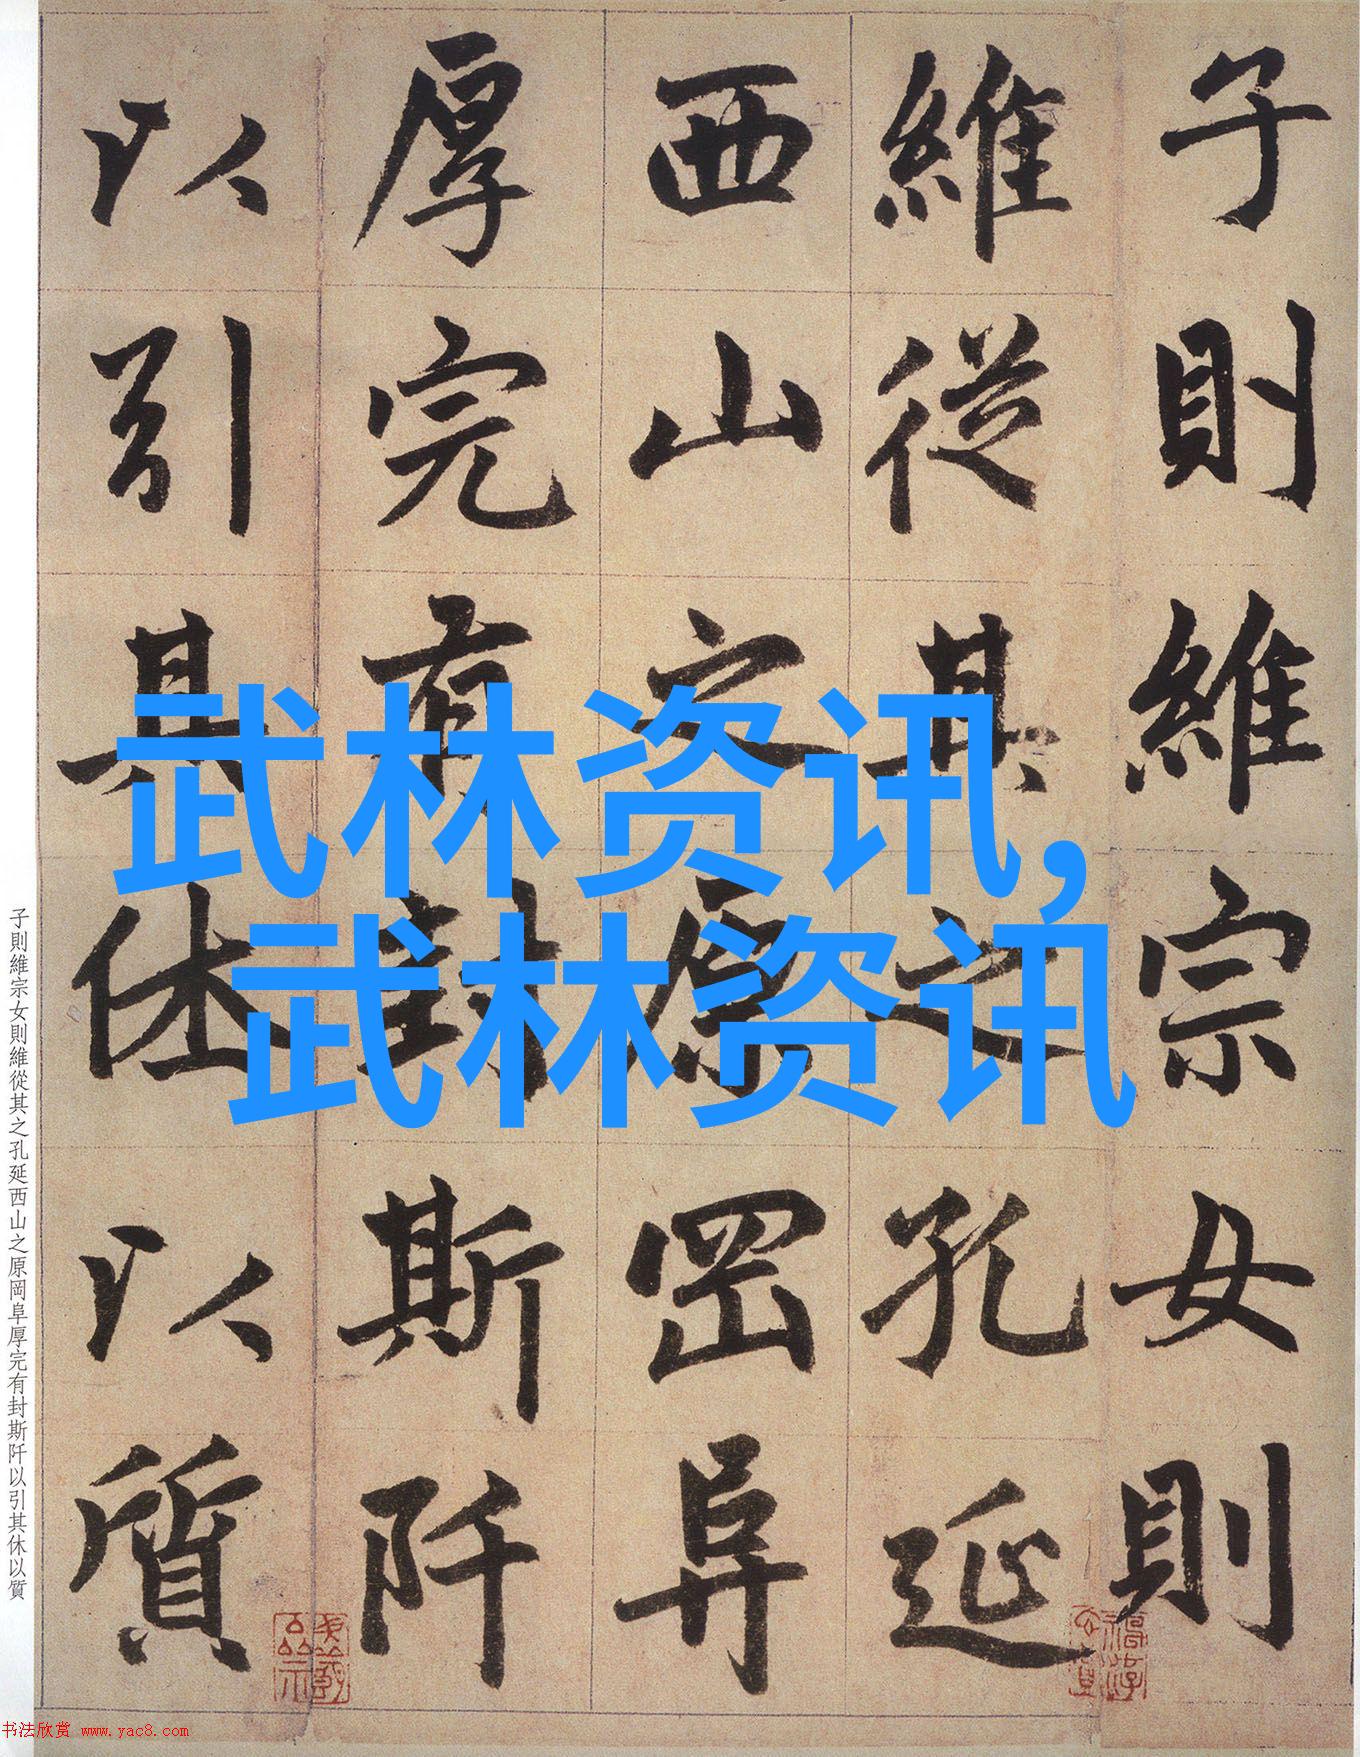 子則維宗女則
維從其之孔延
西山之原岡阜
厚完有封斯阡
以引其休以質
武林资讯,
武林资讯
子則維宗女則維從其之孔延西山之原岡阜厚完有封斯阡以引其休以質
书法欣赏 www.yac8.com